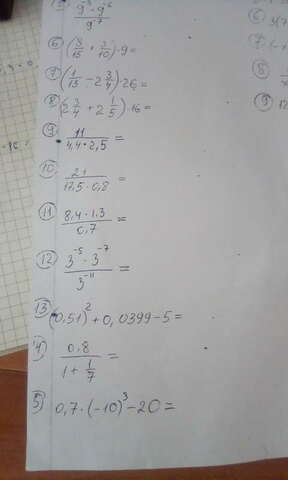 9⁻³ · 9⁻⁶ / 9⁻⁷
6) (8/15 + 3/10) · 9 =
7) (1/13 - 2 3/4) · 26 =
8) (2 3/4 + 2 1/5) · 16 =
9) 11 / 4,4 · 2,5 =
10) 21 / 17,5 · 0,8 =
11) 8,4 · 1,3 / 0,7 =
12) 3⁻⁵ · 3⁻⁷ / 3⁻¹¹ =
13) (0,51)² + 0,0399 - 5 =
14) 0,8 / 1 + 1/7 =
5) 0,7 · (-10)³ - 20 =